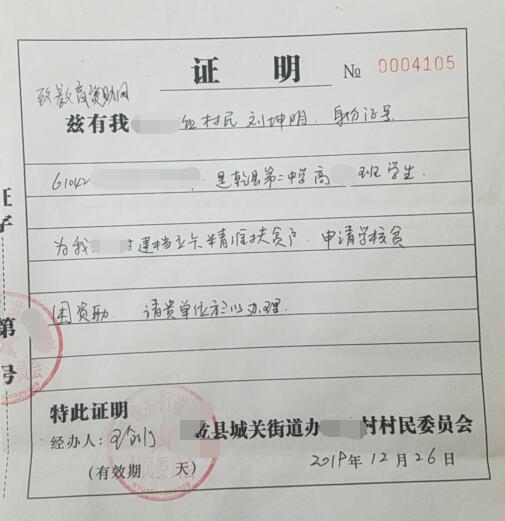 证 明
№ 0004105
致教育资助网
兹有我 村民刘坤明、身份证号
61042 是乾县第二中学高 班学生.
为我 村建档立卡精准扶贫户、申请学校贫
困资助、请贵单位予以办理.
特此证明
乾县城关街道办 村村民委员会
经办人：
(有效期 天)
2019年12月26日
证字
第
号